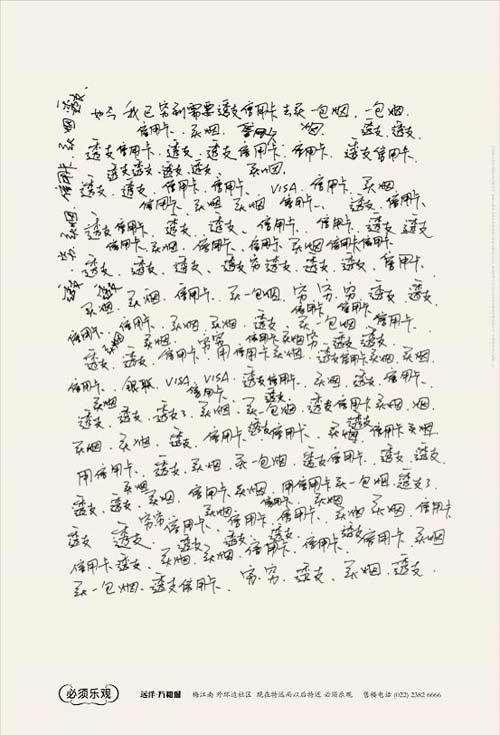 如今 我已穷到需要透支信用卡去买一包烟，一包烟．
信用卡．买烟．信用卡 烟．透支．透支．
透支信用卡．透支．透支信用卡．信用卡．透支信用卡．
透支透支．透支．透支．买烟．
透支．透支．信用卡．信用卡．VISA．信用卡．买烟．
信用卡．买烟 买烟 信用卡．透支信用卡．
透支信用卡．透支．透支．信用卡．信用卡．透支 透支
信用卡．买烟．信用卡．信用卡 买烟信用卡信用卡．
透支．透支．透支．透支穷透支．透支．透支．信用卡．
买烟．买烟．信用卡．买一包烟．穷 穷 穷 透支．透支．
信用卡．信用卡．
信用卡．信用卡．买烟 买烟．透支．买一包烟．信用卡．
买烟 买烟．穷穷．信用卡买烟穷 透支 透支．
透支．透支．信用卡 用信用卡买烟．透支信用卡买烟．买烟．
信用卡．银联．VISA．VISA．透支信用卡．买烟．透支．信用卡．
买烟．信用卡．透支．
透支．透支．透支了．买烟．买一包烟．透支信用卡．买烟．烟．
买烟．买烟．透支．信用卡 透支信用卡．买烟．透支信用卡 买烟．
用信用卡．透支．买烟．买一包烟．透支信用卡．透支．透支．
买烟
透支．透支．买烟．信用卡买烟．用信用卡买一包烟．透支了．
信用卡．买烟
透支 透支 穷穷信用卡．信用卡．信用卡．买烟 买烟．信用卡
透支 透支．透支．透支
信用卡透支．买烟．买烟．信用卡．信用卡．信用卡 买烟
买一包烟．透支信用卡．穷．穷．透支．买烟．透支．
透支．
买烟
信用卡．
买烟
穷．
透支 透支
必须乐观
远洋·万和城
梅江南 外环边社区 现在特远而以后特近 必须乐观
售楼电话 (022) 2382 6666